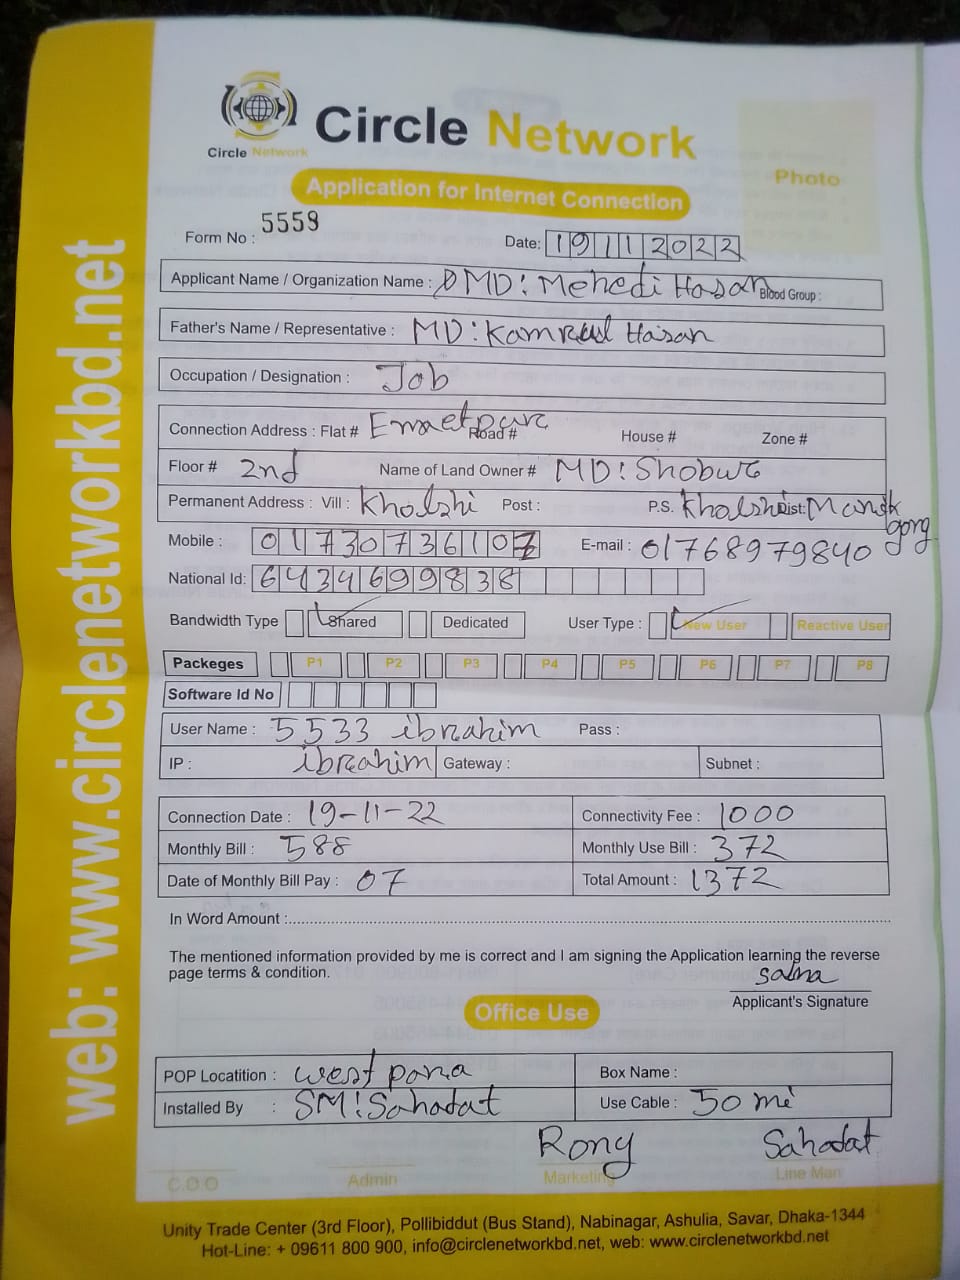 web: www.circlenetworkbd.net
Circle Network
Circle Network
Photo
Application for Internet Connection
Form No : 5559
Date: 19112022
Applicant Name / Organization Name : MD: Mehedi Hasan Blood Group :
Father's Name / Representative : MD: Kamrul Hasan
Occupation / Designation : Job
Connection Address : Flat # Road # House # Zone #
Floor # 2nd Name of Land Owner # MD:
Permanent Address : Vill : Kholshi Post : P.S. Kholshi Dist: Manikgong
Mobile : 01730736107 E-mail : 01768979840
National Id: 6434699838
Bandwidth Type Shared Dedicated User Type : New User Reactive User
Packeges P1 P2 P3 P4 P5 P6 P7 P8
Software Id No
User Name : 5533 ibrahim Pass :
IP : ibrahim Gateway : Subnet :
Connection Date : 19-11-22 Connectivity Fee : 1000
Monthly Bill : 588 Monthly Use Bill : 372
Date of Monthly Bill Pay : 07 Total Amount : 1372
In Word Amount :
The mentioned information provided by me is correct and I am signing the Application learning the reverse
page terms & condition.
Applicant's Signature
Office Use
POP Locatition : west para Box Name :
Installed By : SM: Sahadat Use Cable : 50 mi
Rony Sahadat
C.O.O Admin Marketing Line Man
Unity Trade Center (3rd Floor), Pollibiddut (Bus Stand), Nabinagar, Ashulia, Savar, Dhaka-1344
Hot-Line: + 09611 800 900, info@circlenetworkbd.net, web: www.circlenetworkbd.net